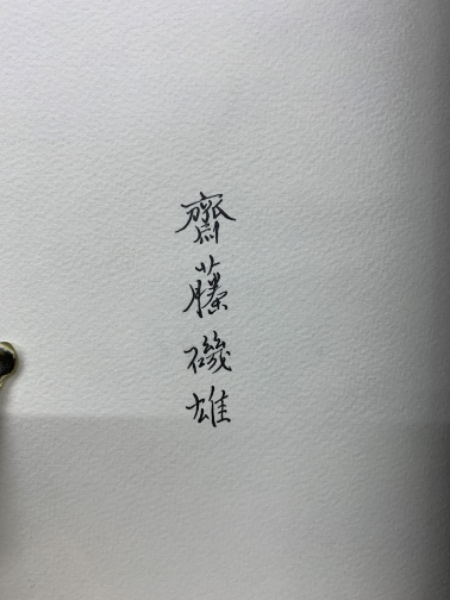 齋藤磯雄